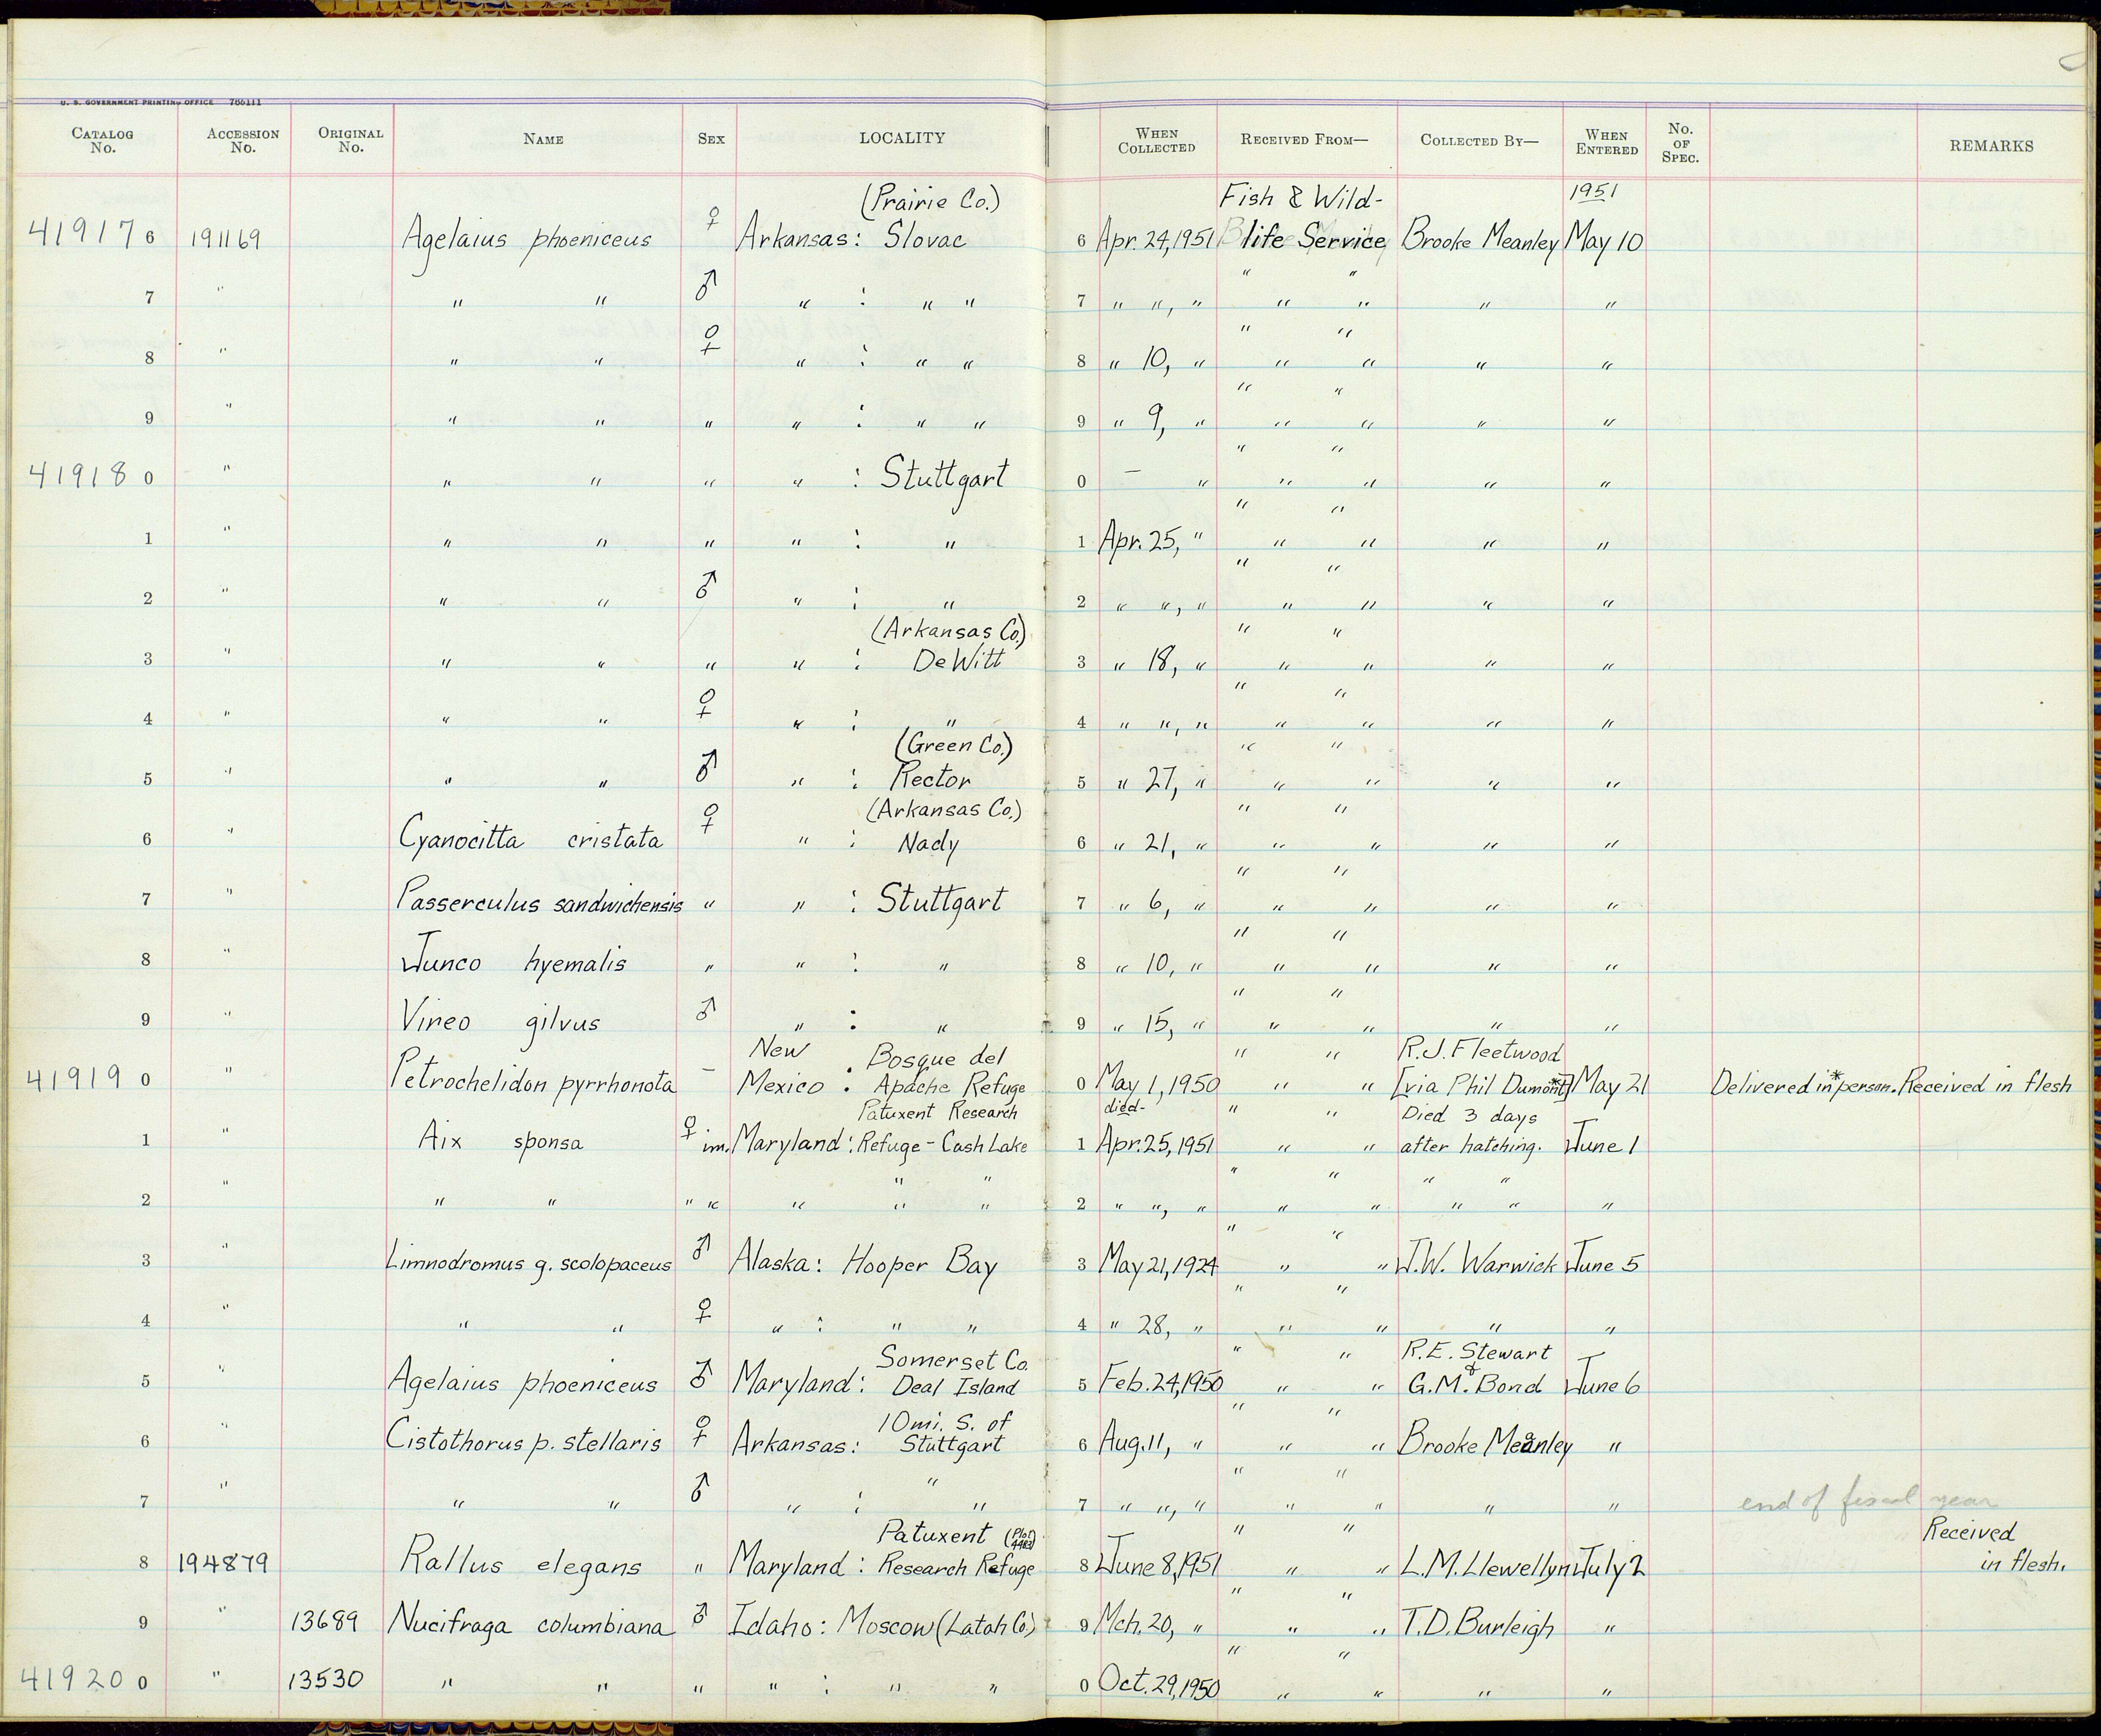 U. S. GOVERNMENT PRINTING OFFICE 766111
CATALOG No. ACCESSION No. ORIGINAL No. NAME SEX LOCALITY WHEN COLLECTED RECEIVED FROM— COLLECTED BY— WHEN ENTERED No. OF SPEC. REMARKS
(Prairie Co.) Fish & Wild- 1951
41917 6 191169 Agelaius phoeniceus ♀ Arkansas: Slovac 6 Apr. 24, 1951 life Service Brooke Meanley May 10
" "
7 " " " ♂ " : " " 7 " ", " " " " "
" "
8 " " " ♀ " : " " 8 " 10, " " " " "
" "
9 " " " " " : " " 9 " 9, " " " " "
" "
41918 0 " " " " " : Stuttgart 0 — " " " " "
" "
1 " " " " " : " 1 Apr. 25, " " " " "
" "
2 " " " ♂ " : " 2 " ", " " " " "
(Arkansas Co.) " "
3 " " " " " : DeWitt 3 " 18, " " " " "
" "
4 " " " ♀ " : " 4 " ", " " " " "
(Green Co.) " "
5 " " " ♂ " : Rector 5 " 27, " " " " "
(Arkansas Co.) " "
6 " Cyanocitta cristata ♀ " : Nady 6 " 21, " " " " "
" "
7 " Passerculus sandwichensis " " : Stuttgart 7 " 6, " " " " "
" "
8 " Junco hyemalis " " : " 8 " 10, " " " " "
" "
9 " Vireo gilvus ♂ " : " 9 " 15, " " " " "
New Bosque del " " R.J. Fleetwood
41919 0 " Petrochelidon pyrrhonota — Mexico : Apache Refuge 0 May 1, 1950 " " [via Phil Dumont*] May 21 Delivered in* person. Received in flesh
Patuxent Research died- " " Died 3 days
1 " Aix sponsa ♀ im. Maryland: Refuge - Cash Lake 1 Apr. 25, 1951 " " after hatching. June 1
" " " " " "
2 " " " " " " " " 2 " ", " " " " " "
" "
3 " Limnodromus g. scolopaceus ♂ Alaska: Hooper Bay 3 May 21, 1924 " " J.W. Warwick June 5
" "
4 " " " ♀ " : " " 4 " 28, " " " " "
Somerset Co. " " R.E. Stewart
5 " Agelaius phoeniceus ♂ Maryland: Deal Island 5 Feb. 24, 1950 " " & G.M. Bond June 6
10 mi. S. of " "
6 " Cistothorus p. stellaris ♀ Arkansas: Stuttgart 6 Aug. 11, " " " Brooke Meanley "
" " "
7 " " " ♂ " : " 7 " ", " " " " " end of fiscal year
Patuxent " " Received
8 194879 Rallus elegans " Maryland: Research Refuge 8 June 8, 1951 " " L.M. Llewellyn July 2 in flesh.
" "
9 " 13689 Nucifraga columbiana ♂ Idaho: Moscow (Latah Co.) 9 Mch. 20, " " " T.D. Burleigh "
" "
41920 0 " 13530 " " " " : " " 0 Oct. 29, 1950 " " " "